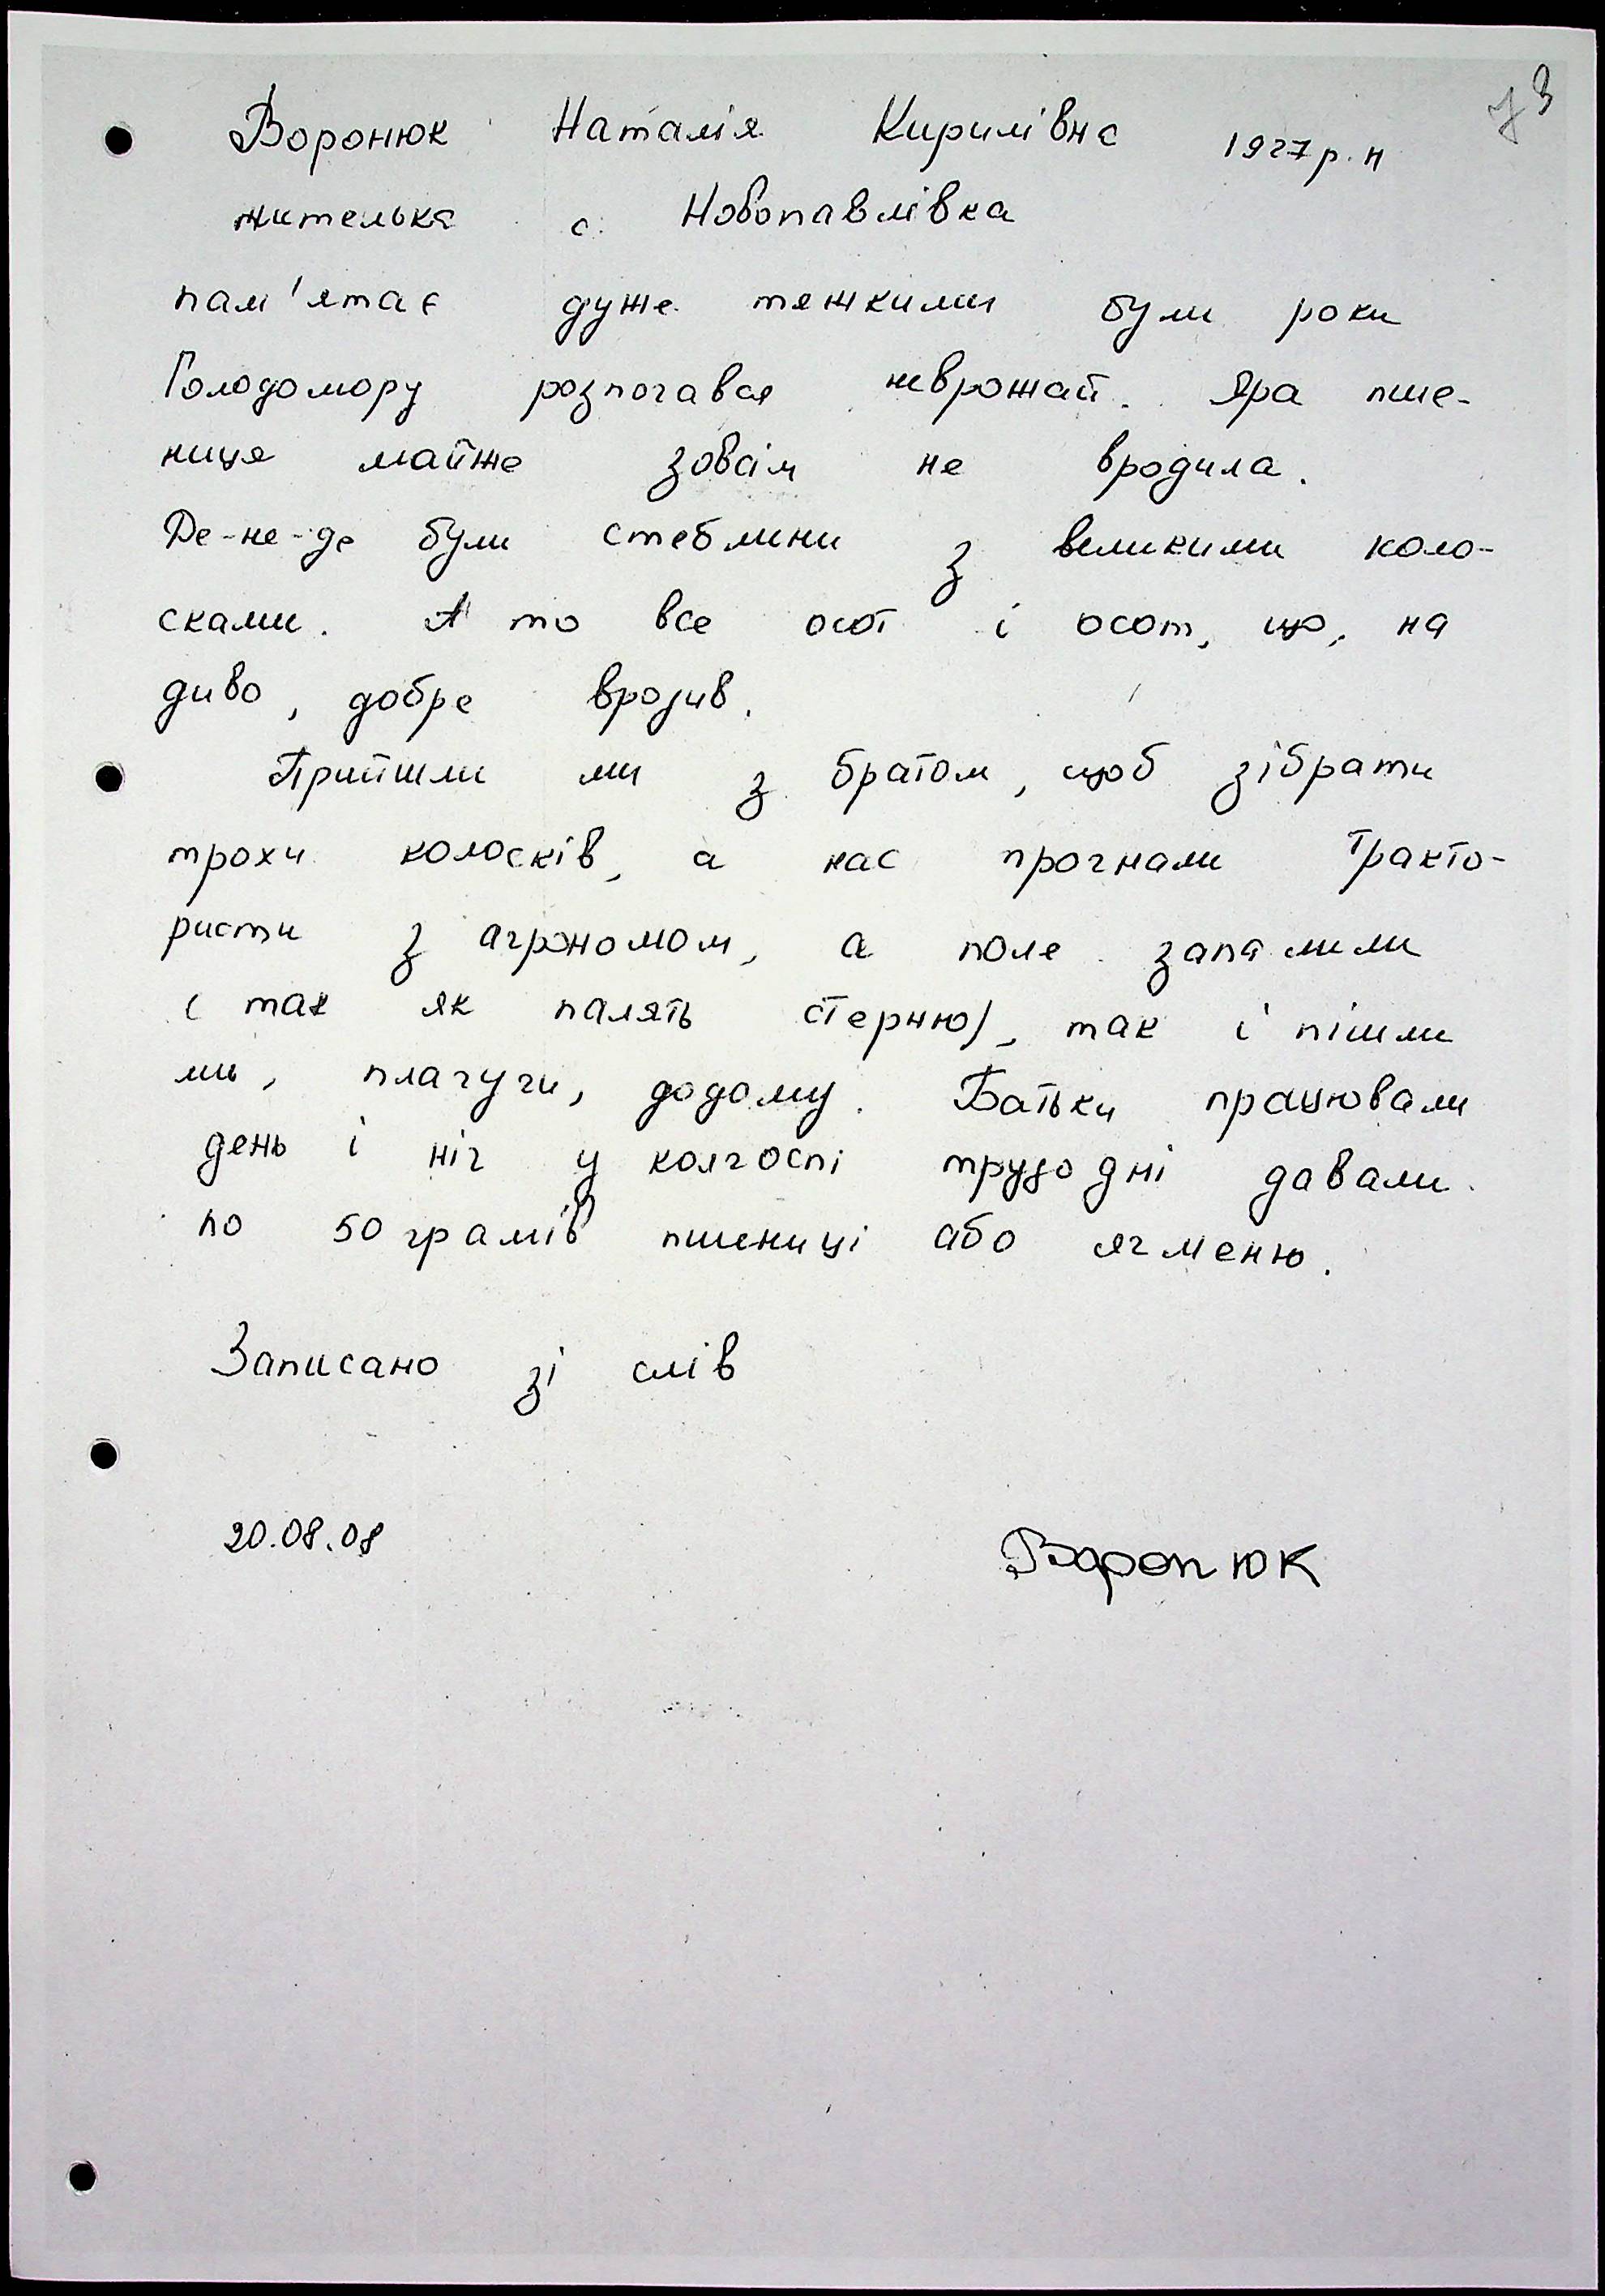 73
Воронюк Наталія Кирилівна 1927 р. н
жителька с. Новопавлівка
пам'ятає дуже тяжкими були роки
Голодомору розпочався неврожай. Яра пше-
ниця майже зовсім не вродила.
Де-не-де були стеблини з великими коло-
сками. А то все осот і осот, що, на
диво, добре вродив.
Прийшли ми з братом, щоб зібрати
трохи колосків, а нас прогнали тракто-
ристи з агрономом, а поле запалили
( так як палять стерню), так і пішли
ми, плачучи, додому. Батьки працювали
день і ніч у колгоспі трудодні давали
по 50 грамів пшениці або ячменю.
Записано зі слів
20.08.08 Воронюк